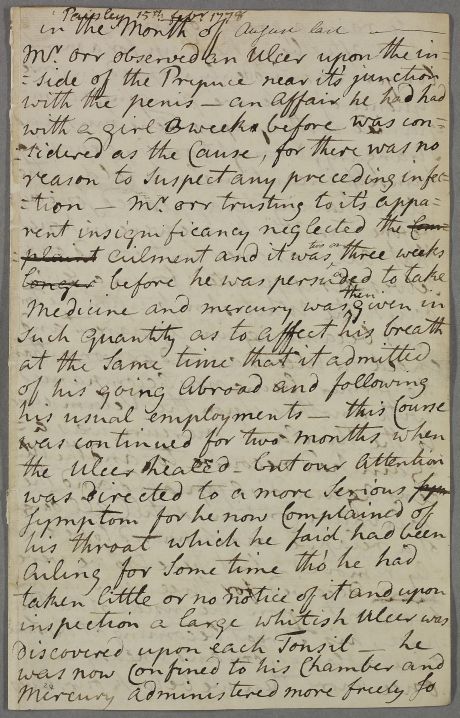 Paisley 15th 1778
in the Month of August last
Mr. Orr observed an Ulcer upon the in-
-side of the Prepuce near its junction
with the penis — an Affair he had had
with a girl weeks before was con-
-sidered as the Cause, for there was no
reason to suspect any preceding infec-
-tion — Mr. Orr trusting to its appa-
rent insignificancy neglected the Com
plaint ailment and it was two or three weeks
longer before he was persuaded to take
Medicine and mercury was then given in
Such Quantity as to affect his breath
at the Same time that it admitted
of his going Abroad and following
his usual employments — this Course
was continued for two months, when
the Ulcer healed — but our Attention
was Directed to a more Serious
Symptom for he now Complained of
his throat which he said had been
Ailing for Some time tho' he had
taken little or no notice of it and upon
inspection a large whitish Ulcer was
Discovered upon each Tonsil — he
was now Confined to his Chamber and
Mercury administered more freely So